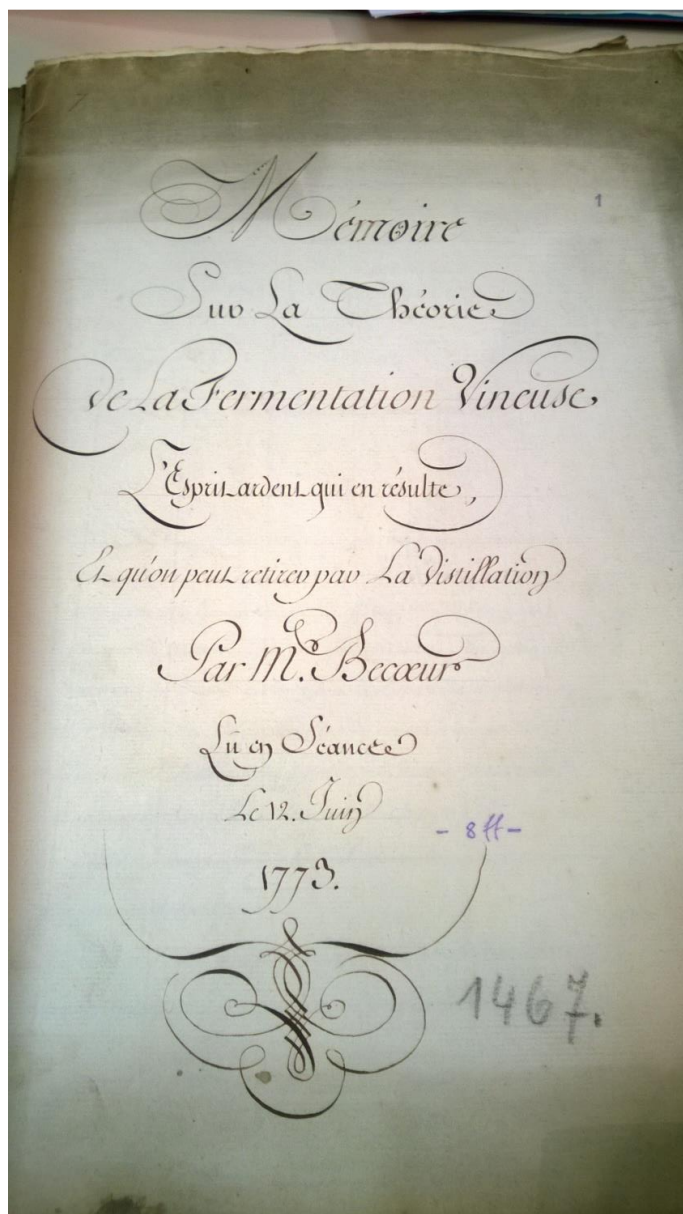 1
Mémoire
Sur La Théorie
de La Fermentation Vineuse,
L'Esprit ardent qui en résulte,
Et qu'on peut retirer par La Distillation
Par M. Becœur
Lû en Séance
Le 12. Juin
- 8 ff -
1773.
1467.